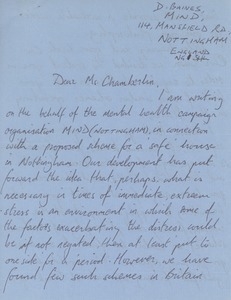 D. BAINES,
MIND,
114, MANSFIELD RD,
NOTTINGHAM
ENGLAND
NG
Dear Ms Chamberlin,
I am writing
on the behalf of the mental health campaign
organisation MIND (NOTTINGHAM), in connection
with a proposed scheme for a 'safe' house
in Nottingham. Our development has put
forward the idea that, perhaps, what is
necessary in times of immediate, extreme
stress is an environment in which some of
the factors exacerbating the distress would
be if not negated, then at least put to
one side for a period. However, we have
found few such schemes in Britain.